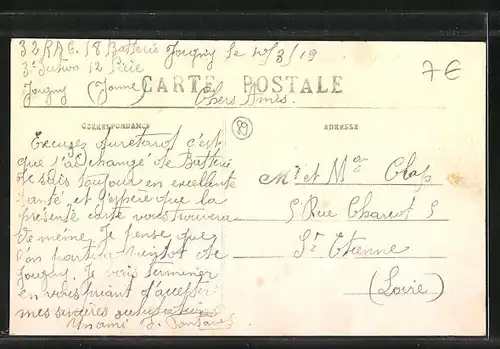 32 RAC. 18 Batterie Jougny le 10/3/19
3e Section 12 Pièce
Jougny (Yonne) Chers Amis.
CARTE POSTALE
7€
89
CORRESPONDANCE
ADRESSE
Excusez du retard c'est
que j'ai changé de Batterie
Je suis toujour en excellente
santé, et j'espère que la
présente carte vous trouvera
de même. Je pense que
l'on partira bientot de
Jougny. Je vais terminer
en vous priant d'accepter
mes sincères
Un ami J.
Mr et Me Clap
5 Rue Charcot 5
St Etienne
(Loire)